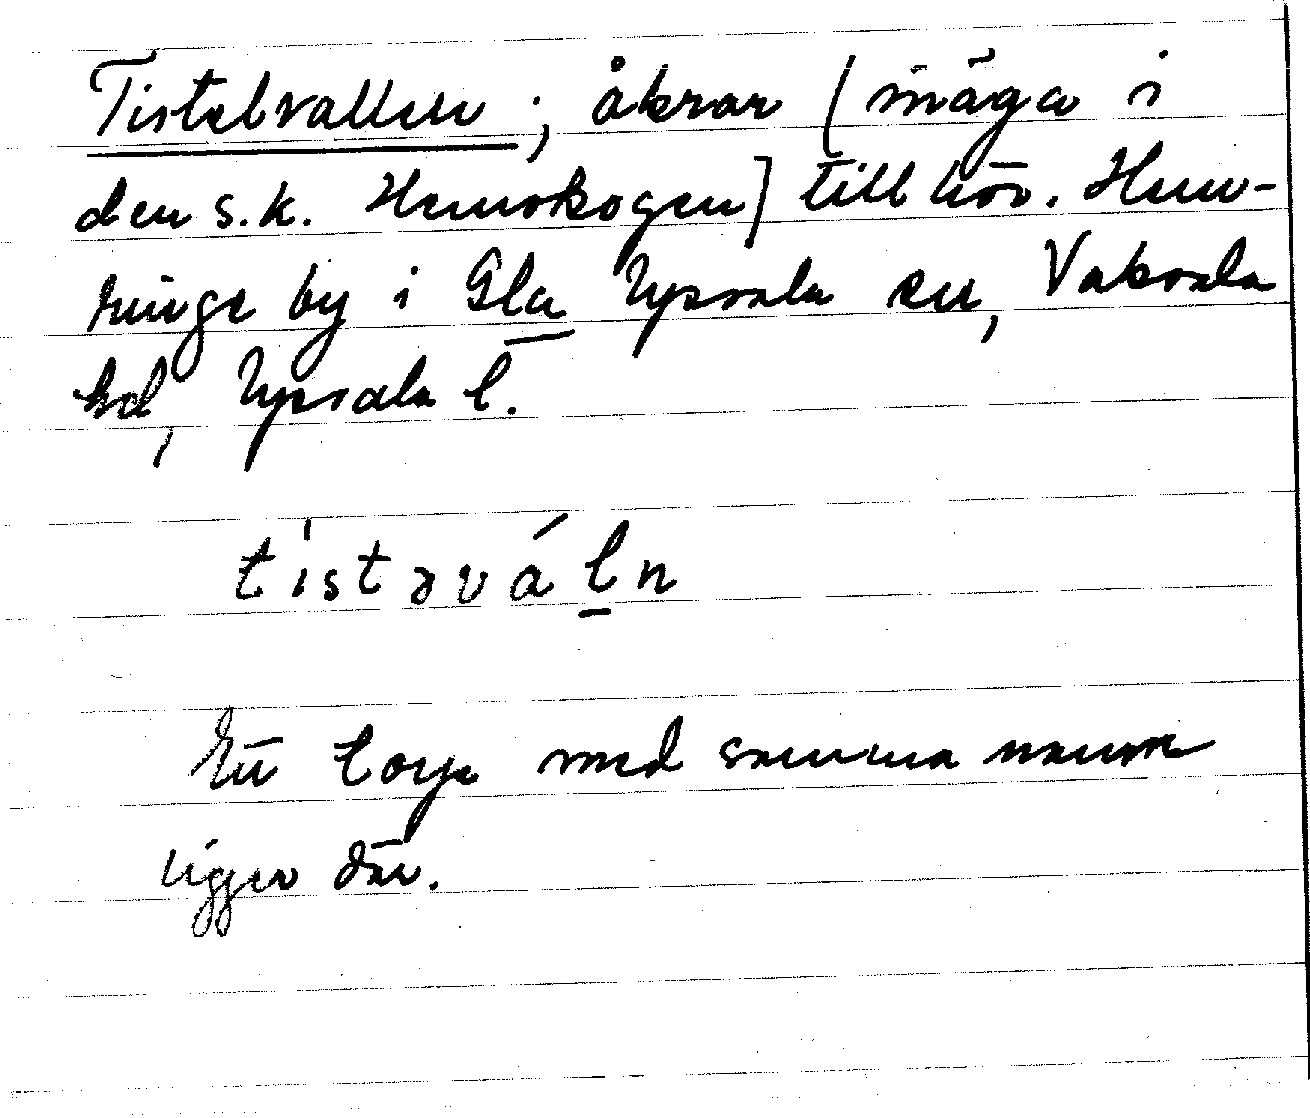 Tistelvallen; åkrar (inäga i
den s.k. Hemskogen) till höv. Hem-
ringe by i Gla Upsala sn, Vaksala
hd, Upsala l.
tistəváln
Ett torp med samma namn
ligger där.